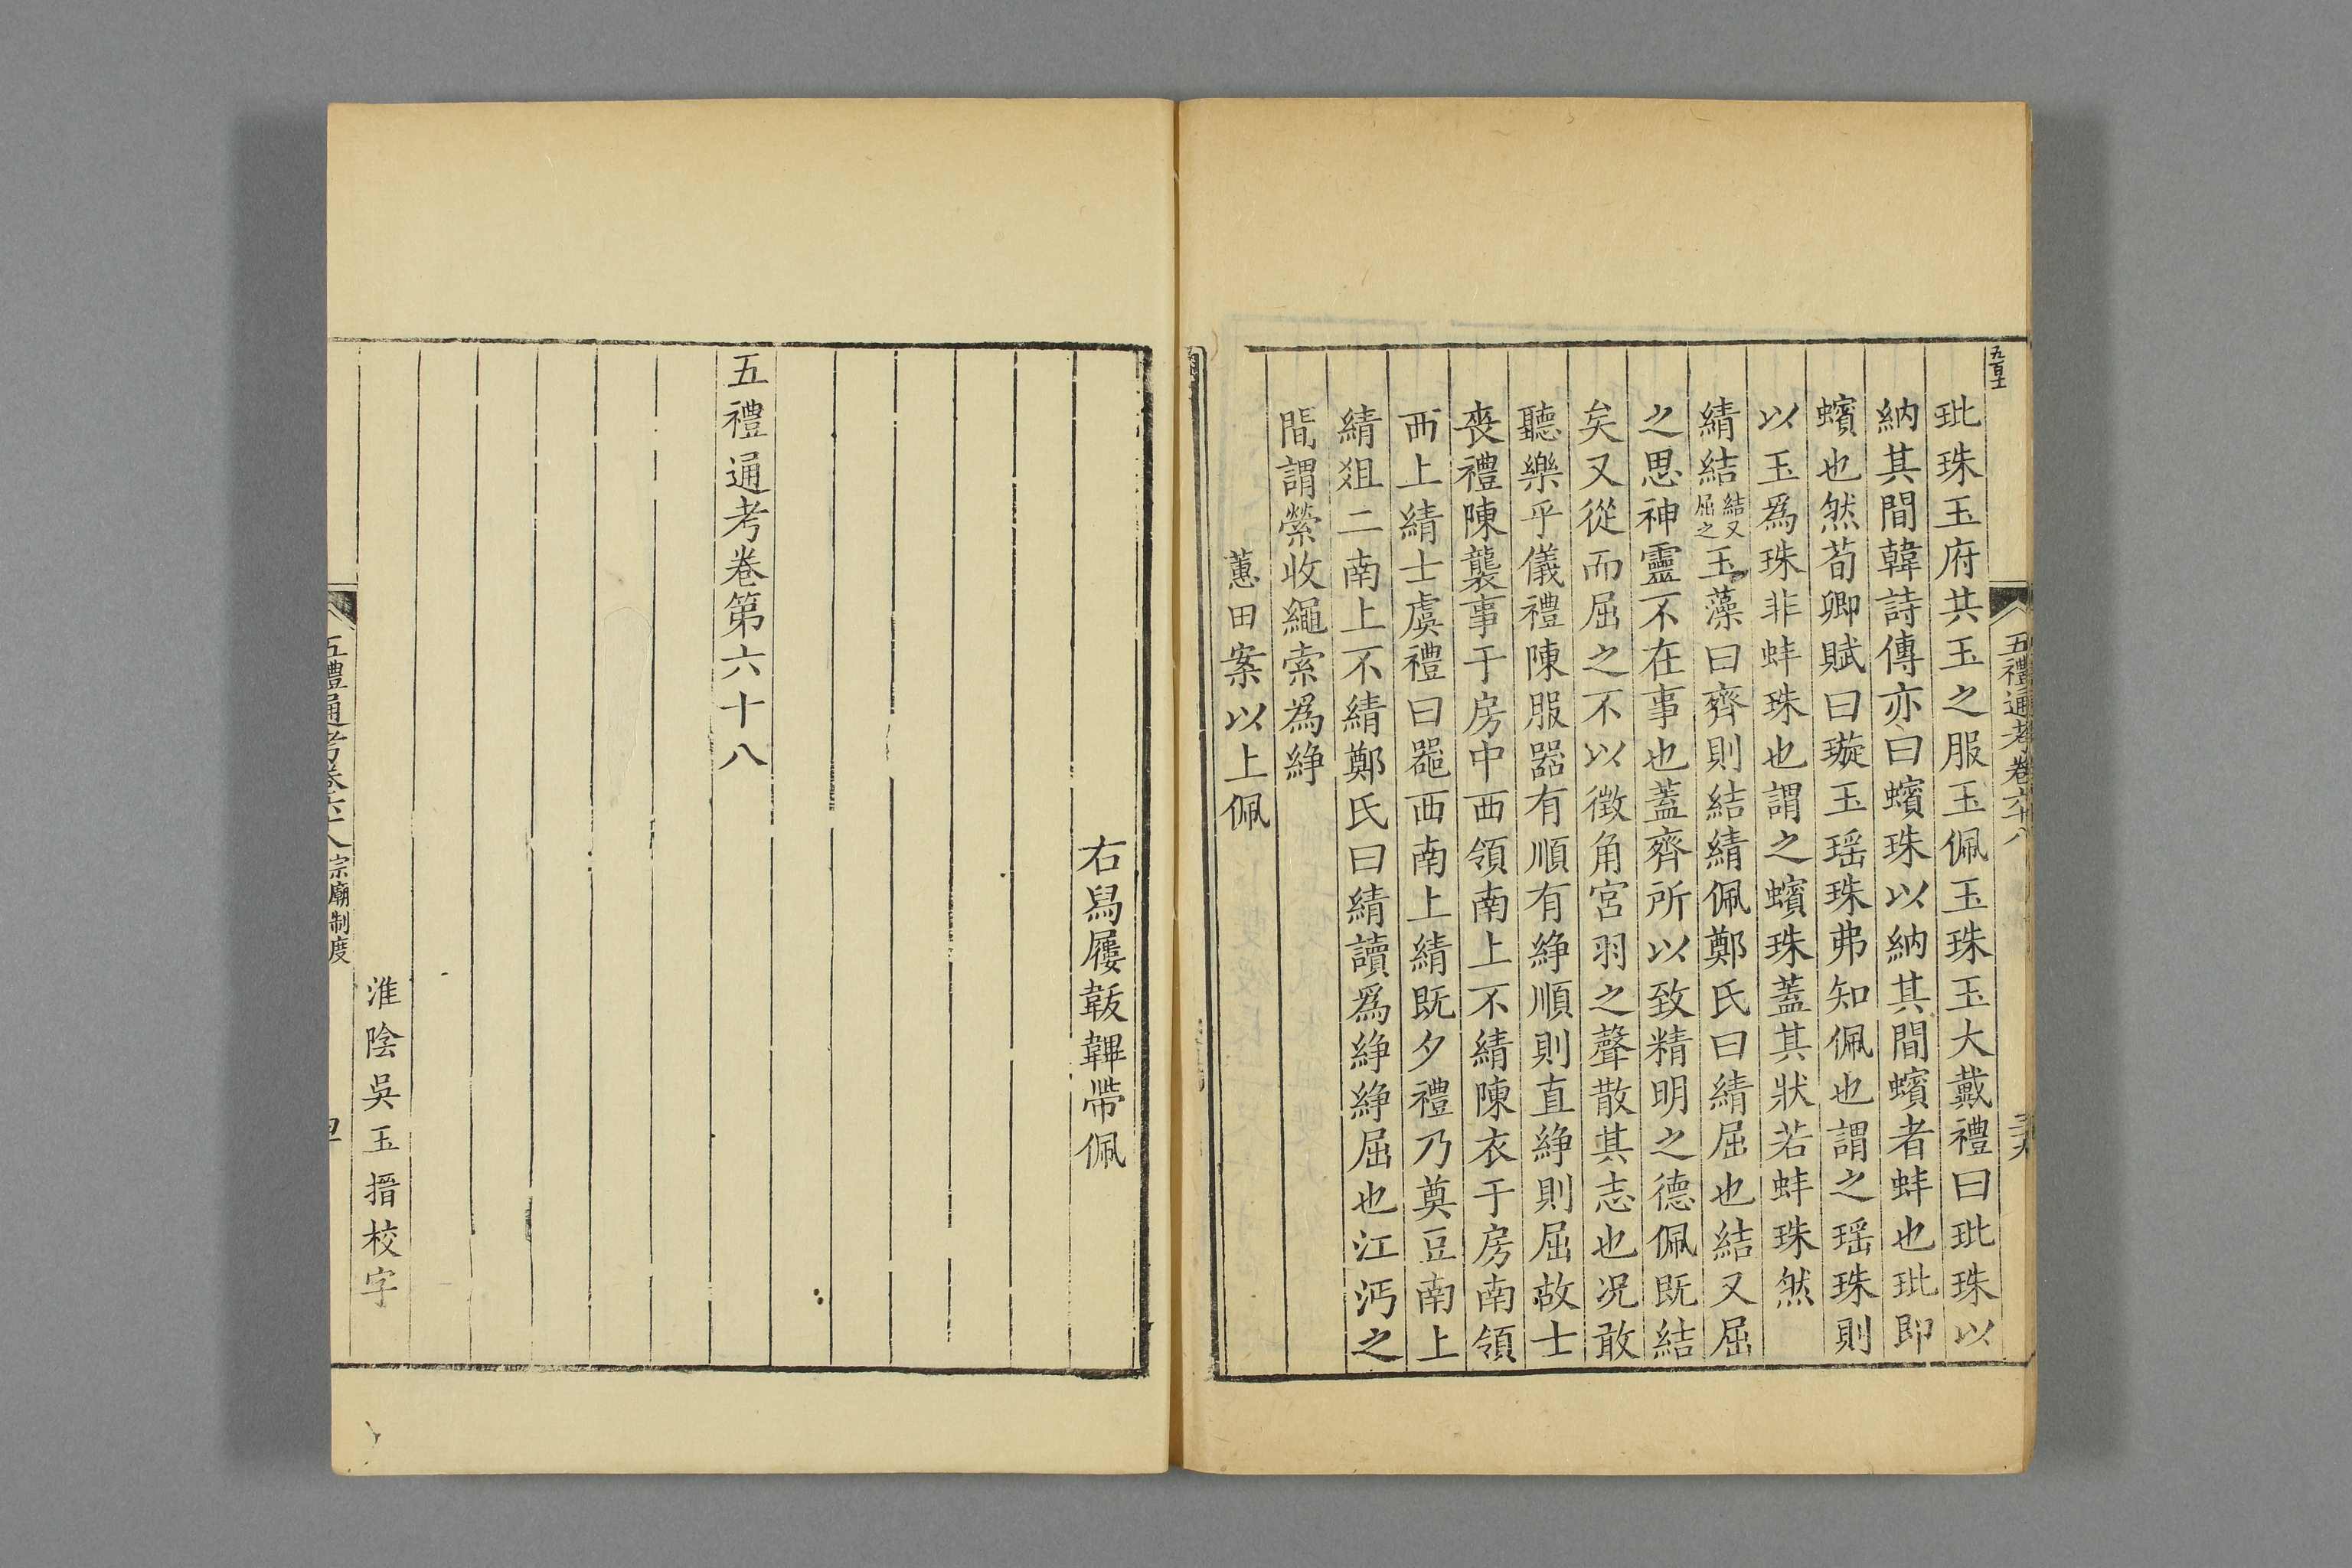 五百十
五禮通考卷六十八
三十九
玭珠玉府共玉之服玉佩玉珠玉大戴禮曰玭珠以
納其間韓詩傳亦曰蠙珠以納其間蠙者蚌也玭即
蠙也然荀卿賦曰璇玉瑶珠弗知佩也謂之瑶珠則
以玉爲珠非蚌珠也謂之蠙珠蓋其狀若蚌珠然
綪結結又屈之玉藻曰齊則結綪佩鄭氏曰綪屈也結又屈
之思神靈不在事也蓋齊所以致精明之德佩既結
矣又從而屈之不以徵角宮羽之聲散其志也况敢
聽樂乎儀禮陳服器有順有綪順則直綪則屈故士
喪禮陳襲事于房中西領南上不綪陳衣于房南領
西上綪士虞禮曰噐西南上綪既夕禮乃奠豆南上
綪俎二南上不綪鄭氏曰綪讀爲絣絣屈也江沔之
間謂縈收繩索爲絣
蕙田案以上佩
右舄屨韍鞸帶佩
五禮通考卷第六十八
淮陰吳玉搢校字
五禮通考卷六十八 宗廟制度